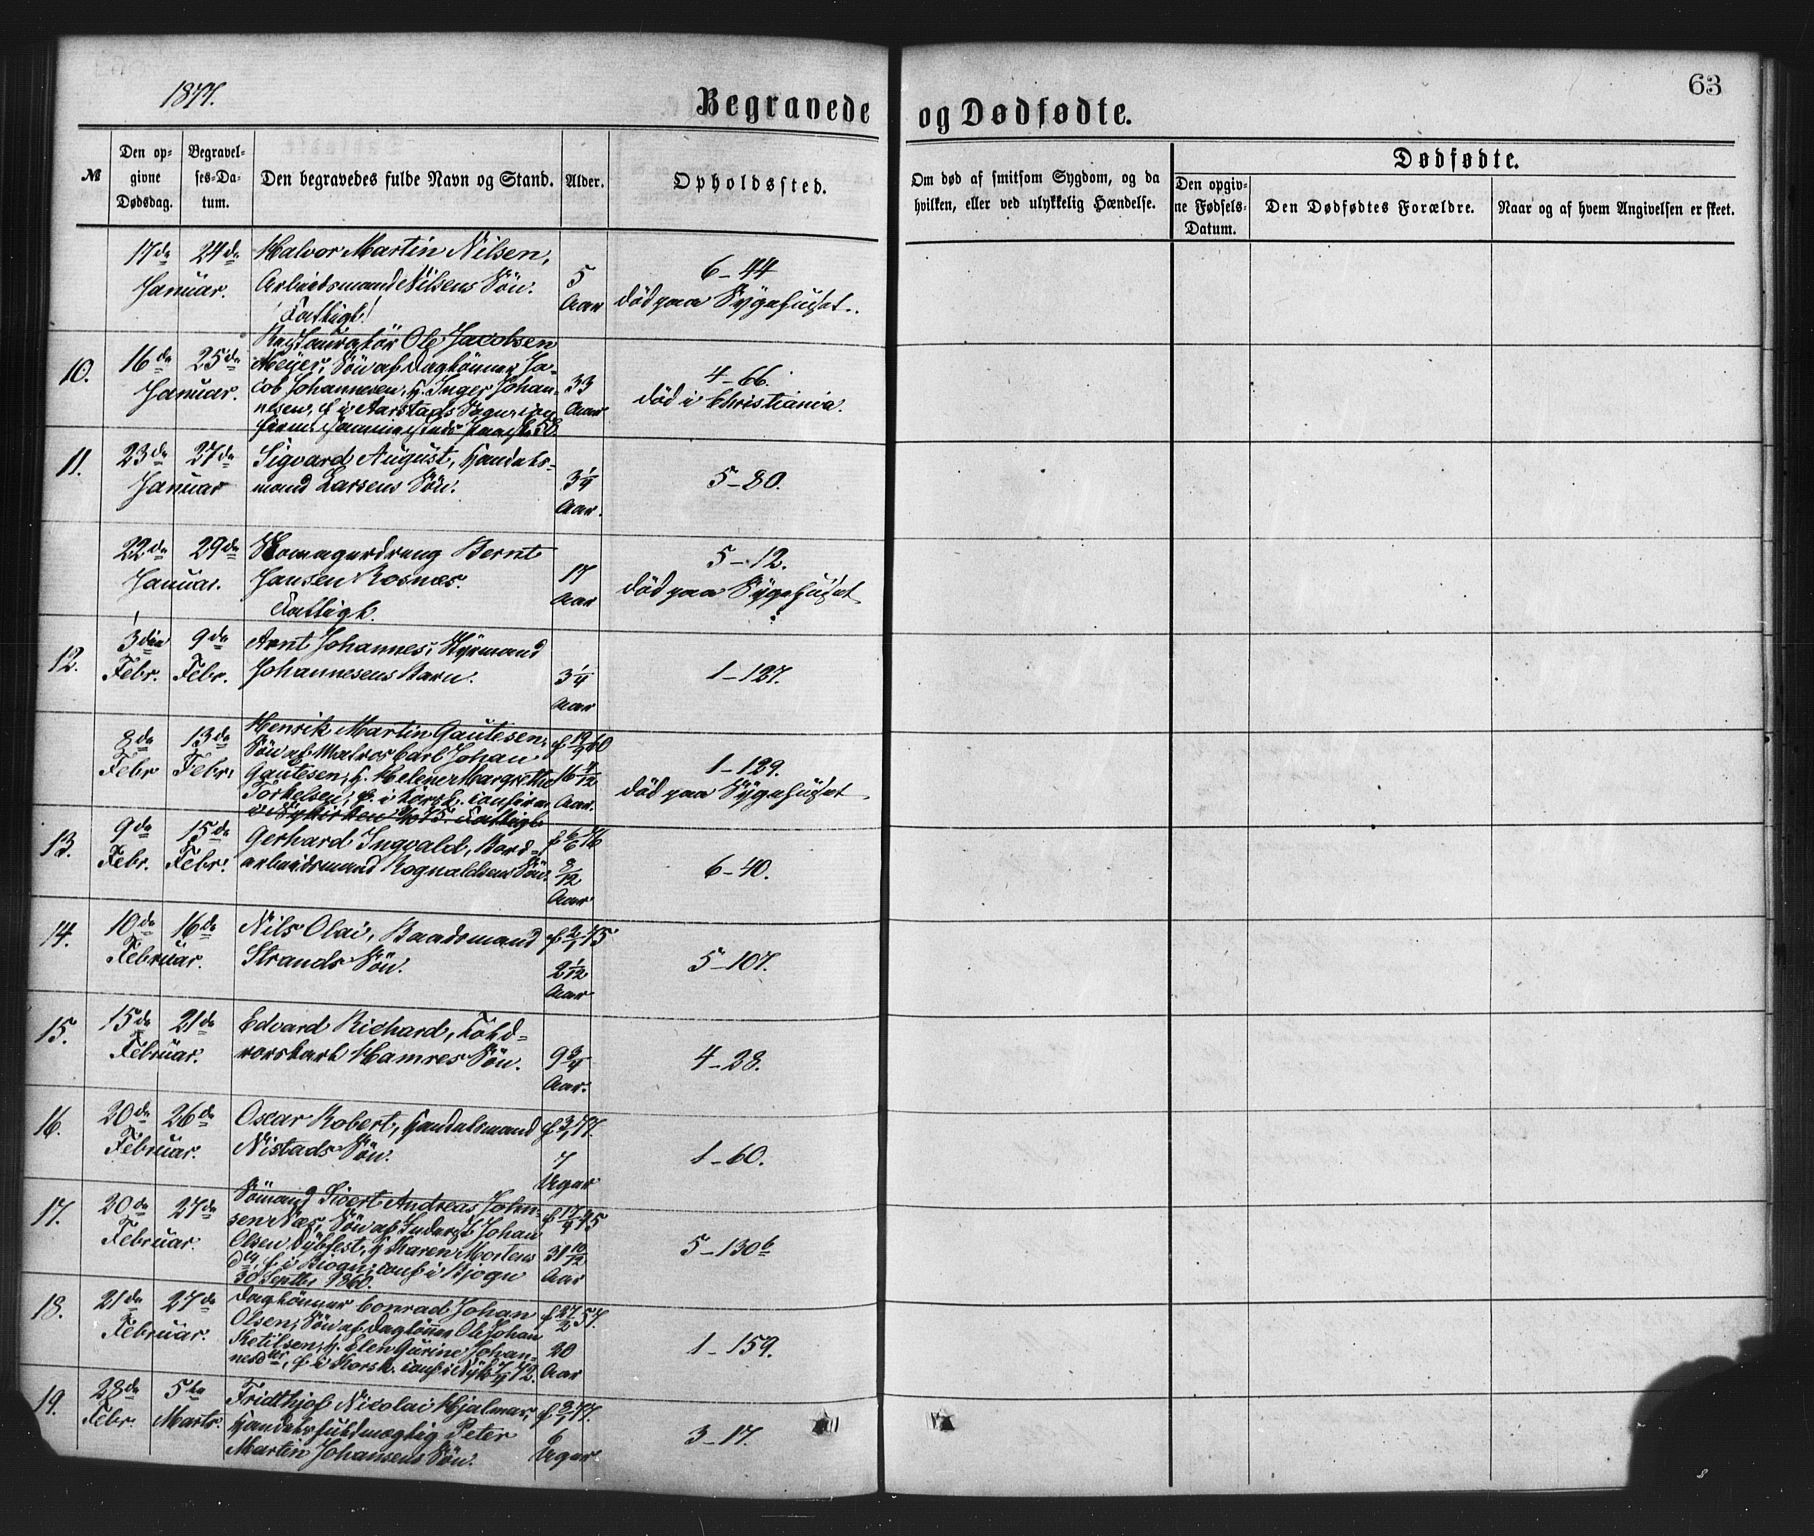 1877.
63
Begravede og Dødfødte.
№
Den opgivne Dødsdag.
Begravelses-Datum.
Den begravedes fulde Navn og Stand.
Alder.
Opholdssted.
Om død af smitsom Sygdom, og da hvilken, eller ved ulykkelig Hændelse.
Dødfødte.
Den opgivne Fødsels-Datum.
Den Dødfødtes Forældre.
Naar og af hvem Angivelsen er skeet.
17de 24de Halvor Martin Nilsen,
Januar. Arbeidsmand Nilsens Søn. 5 Aar 6-44
Fattigl. død paa Sygehuset.
10. 16de 25de Ole Jacobsen
Januar. Meyer, Søn af Daglønner Ja-
cob Johannesen, H. Inger Johan- 33 Aar 4-66.
nesen, f. i Aarstads Sogn, død i Christiania.
11. 23de 27de Sigvard August, Handels-
Januar mand Larsens Søn. 3¼ Aar. 5-80.
22de 29de Bernt 5-12.
Januar. Jansen Rosnes. 17 Aar død paa Sygehuset
Fattigl.
12. 3die 9de Arnt Johannes, Styrmand
Febr. Febr. Johannesens Barn. 3¼ Aar 1-127.
8de 13de Henrik Martin Gautesen, f 19/9 60
Febr Febr. Søn af Matros Carl Johan
Gautesen, H. Helene Margrethe 16 4/12 Aar. 1-129.
Torkelsen, f. i Korsk. confirm. død paa Sygehuset.
i Nykirken 75. Fattigl.
13. 9de 15de Gerhard Ingvald, Bord- f 6/6 76
Febr. Febr. arbeidsmand Rognaldsens Søn. 8/12 Aar 6-40.
14. 10de 16de Nils Olai, Baadsmand f 2/1 75
Februar. Strands Søn. 2 1/12 Aar 5-107.
15. 15de 21de Edvard Richard, Told-
Februar. rorskarl Hamres Søn. 9¾ Aar. 4-38.
16. 20de 26de Oscar Robert, Handelsmand f 3/1 77.
Februar. Nistads Søn. 7 Uger 1-60.
17. 20de 27de Sømand Sivert Andreas John-
Februar. sen Næs, Søn af Johan
Olsen Dybfest, H Karen Mortens 31 10/12 Aar 5-130 b
d., f. i Biogn, conf i Bjogn
30 Septbr 1860.
18. 21de 27de Daglønner Conrad Johan f 27/2 57.
Februar. Olsen, Søn af Dagløn Ole Johan
Ketilsen, H. Elen Gurine Johan- 20 Aar 1-159.
nesdtr, f. i Korsk. conf i Nyk 72.
19. 28de 5te Fridthjof Nicolai Hjalmar, f 3/1 77.
Febr. Marts. Handelsfuldmægtig Peter
Martin Johansens Søn. 6 Uger 3-17.